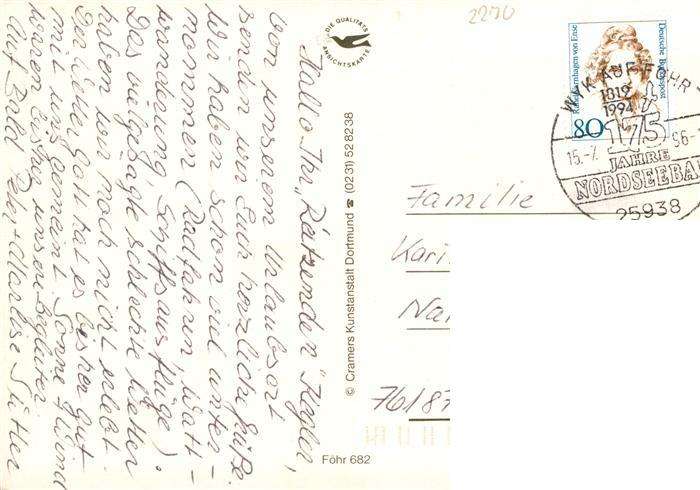 2270
Hallo Ihr "Reizenden" Kegler,
von unserem Urlaubsort
senden wir Euch herzliche Grüße.
Wir haben schon viel unter-
nommen (Radfahren, Watt-
wanderung, Schiffsausflüge).
Das vielgesagte schlechte Wetter
haben wir noch nicht erlebt.
Der liebe Gott hat es bisher gut
mit uns gemeint. Sonne + Wind
waren bisher unsere Begleiter.
Auf Bald Peter + Marlise
DIE QUALITÄTS
ANSICHTSKARTE
© Cramers Kunstanstalt Dortmund ☎ (0231) 52 8238
Föhr 682
Deutsche Bundespost
Rahel Varnhagen von Ense
80
WYK AUF FÖHR
1819
1994
175
15.-7. 96-
JAHRE
NORDSEEBA
25938
Familie
Kari
Na
76187